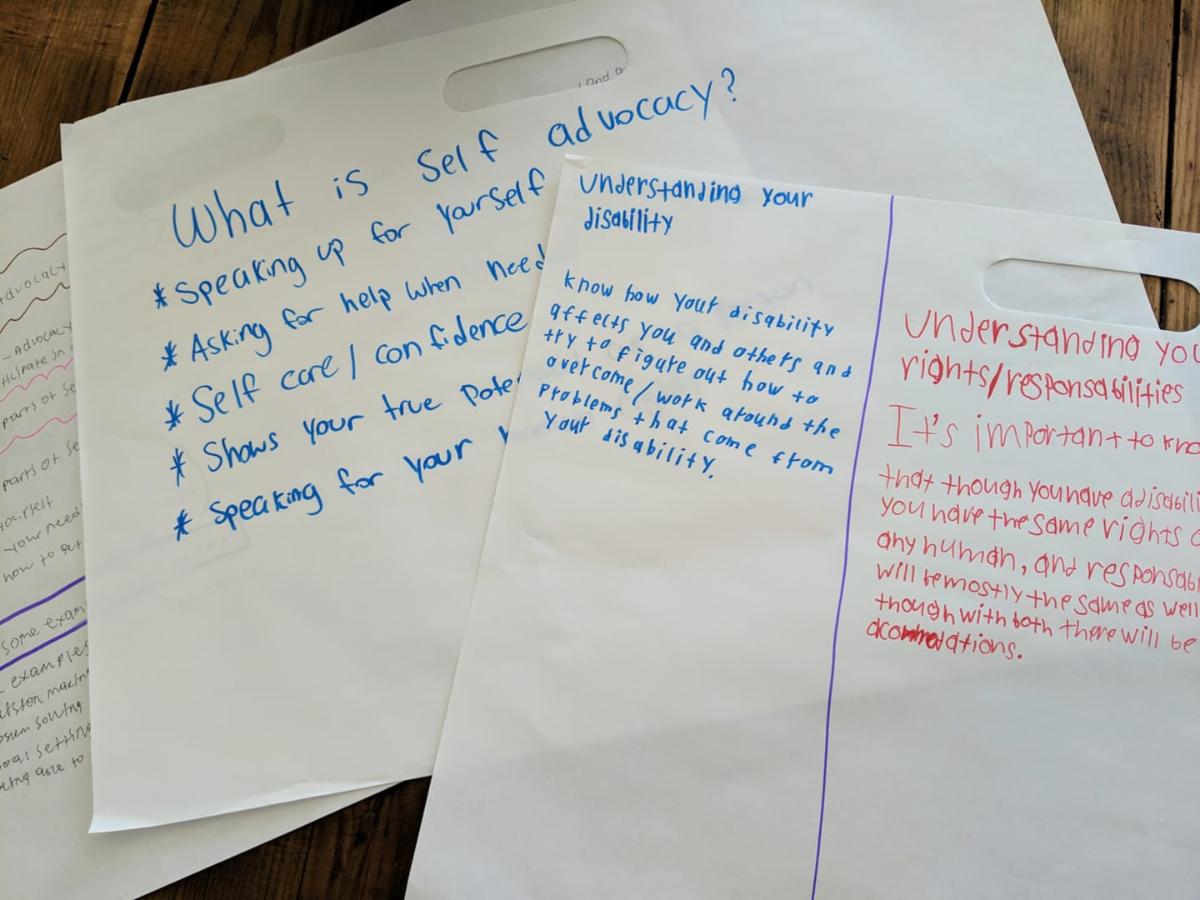 What is Self advocacy?
* Speaking up for yourself
* Asking for help when need
* Self care / confidence
* Shows your true Pote
* Speaking for your
understanding your
disability
know how your disability
affects you and others and
try to figure out how to
overcome/work around the
problems that come from
your disability.
understanding you
rights/responsabilities
It's important to kno
that though you have a disabili
you have the same rights
any human, and responsabi
will be mostly the same as well
though with both there will be
acommodations.
and a
advocacy
- Advocacy
parts of se
parts of se
yourself
your need
how to get
some exam
- examples
goal setting
being able to